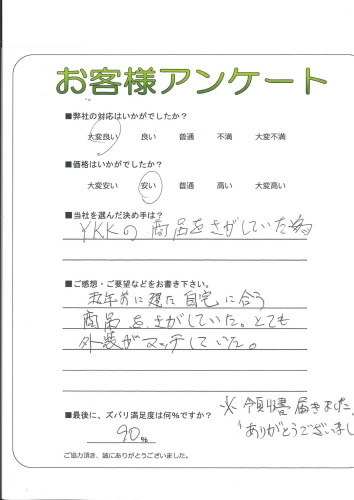 お客様アンケート
■弊社の対応はいかがでしたか?
大変良い 良い 普通 不満 大変不満
■価格はいかがでしたか?
大変安い 安い 普通 高い 大変高い
■当社を選んだ決め手は?
YKKの商品をさがしていた為
■ご感想・ご要望などをお書き下さい。
数年前に建た自宅に合う
商品をさがしていた。とても
外装がマッチしていた。
■最後に、ズバリ満足度は何%ですか?
90%
※領収書届きました
ありがとうございまし
ご協力頂き、誠にありがとうございました。